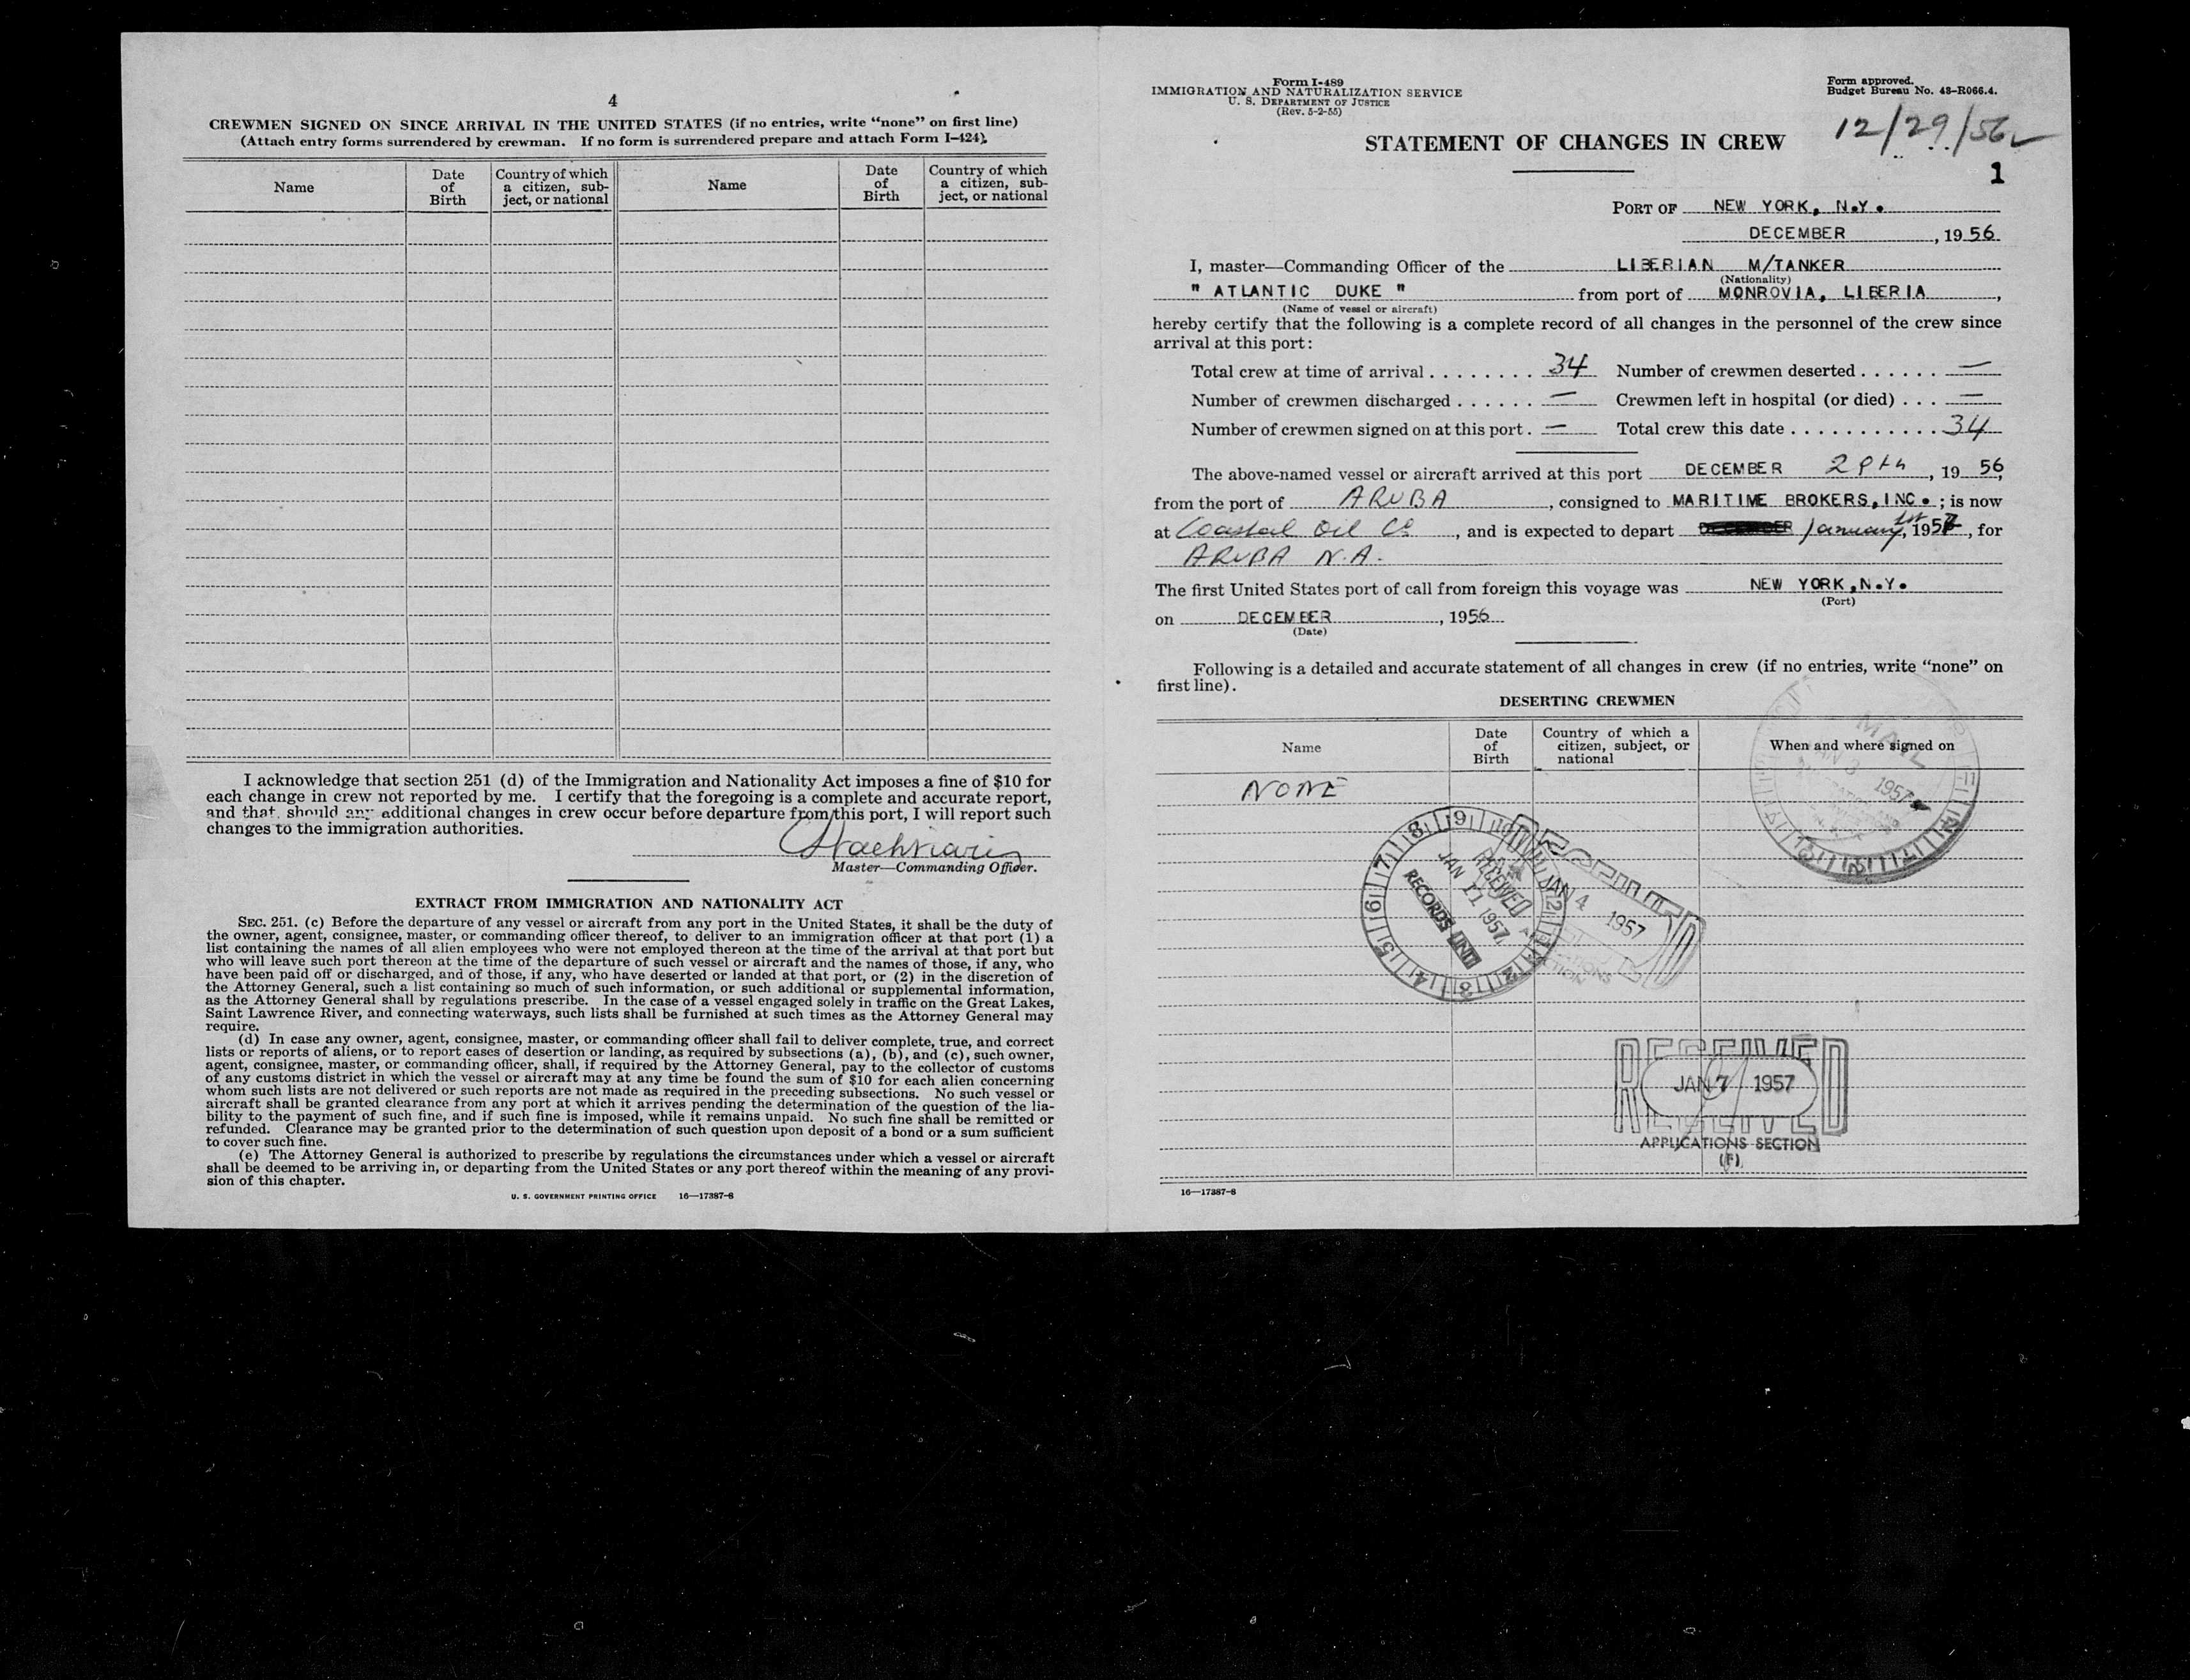 4
CREWMEN SIGNED ON SINCE ARRIVAL IN THE UNITED STATES (if no entries, write “none” on first line)
(Attach entry forms surrendered by crewman. If no form is surrendered prepare and attach Form I-424).
Name
Date of Birth
Country of which a citizen, subject, or national
Name
Date of Birth
Country of which a citizen, subject, or national
I acknowledge that section 251 (d) of the Immigration and Nationality Act imposes a fine of $10 for
each change in crew not reported by me. I certify that the foregoing is a complete and accurate report,
and that should any additional changes in crew occur before departure from this port, I will report such
changes to the immigration authorities.
Master—Commanding Officer.
EXTRACT FROM IMMIGRATION AND NATIONALITY ACT
SEC. 251. (c) Before the departure of any vessel or aircraft from any port in the United States, it shall be the duty of
the owner, agent, consignee, master, or commanding officer thereof, to deliver to an immigration officer at that port (1) a
list containing the names of all alien employees who were not employed thereon at the time of the arrival at that port but
who will leave such port thereon at the time of the departure of such vessel or aircraft and the names of those, if any, who
have been paid off or discharged, and of those, if any, who have deserted or landed at that port, or (2) in the discretion of
the Attorney General, such a list containing so much of such information, or such additional or supplemental information,
as the Attorney General shall by regulations prescribe. In the case of a vessel engaged solely in traffic on the Great Lakes,
Saint Lawrence River, and connecting waterways, such lists shall be furnished at such times as the Attorney General may
require.
(d) In case any owner, agent, consignee, master, or commanding officer shall fail to deliver complete, true, and correct
lists or reports of aliens, or to report cases of desertion or landing, as required by subsections (a), (b), and (c), such owner,
agent, consignee, master, or commanding officer, shall, if required by the Attorney General, pay to the collector of customs
of any customs district in which the vessel or aircraft may at any time be found the sum of $10 for each alien concerning
whom such lists are not delivered or such reports are not made as required in the preceding subsections. No such vessel or
aircraft shall be granted clearance from any port at which it arrives pending the determination of the question of the lia-
bility to the payment of such fine, and if such fine is imposed, while it remains unpaid. No such fine shall be remitted or
refunded. Clearance may be granted prior to the determination of such question upon deposit of a bond or a sum sufficient
to cover such fine.
(e) The Attorney General is authorized to prescribe by regulations the circumstances under which a vessel or aircraft
shall be deemed to be arriving in, or departing from the United States or any port thereof within the meaning of any provi-
sion of this chapter.
U. S. GOVERNMENT PRINTING OFFICE 16—17387-8
Form I-489
IMMIGRATION AND NATURALIZATION SERVICE
U. S. DEPARTMENT OF JUSTICE
(Rev. 5-2-55)
Form approved.
Budget Bureau No. 43-R066.4.
12/29/56
STATEMENT OF CHANGES IN CREW
1
PORT OF NEW YORK, N.Y.
DECEMBER, 1956
I, master—Commanding Officer of the LIBERIAN M/TANKER
(Nationality)
" ATLANTIC DUKE " from port of MONROVIA, LIBERIA,
(Name of vessel or aircraft)
hereby certify that the following is a complete record of all changes in the personnel of the crew since
arrival at this port:
Total crew at time of arrival ........ 34 Number of crewmen deserted ...... —
Number of crewmen discharged ...... — Crewmen left in hospital (or died) ... —
Number of crewmen signed on at this port . — Total crew this date ........... 34
The above-named vessel or aircraft arrived at this port DECEMBER 29th, 19 56,
from the port of ARUBA, consigned to MARITIME BROKERS, INC. ; is now
at Coastal Oil Co, and is expected to depart January 1st, 1957, for
ARUBA N.A.
The first United States port of call from foreign this voyage was NEW YORK, N.Y.
(Port)
on DECEMBER, 1956
(Date)
Following is a detailed and accurate statement of all changes in crew (if no entries, write “none” on
first line).
DESERTING CREWMEN
Name
Date of Birth
Country of which a citizen, subject, or national
When and where signed on
NONE
MAIL
JAN 3 1957
RECEIVED
JAN 11 1957
RECORDS UNIT
RECEIVED
JAN 4 1957
RECEIVED
JAN 7 1957
APPLICATIONS SECTION
(F)
16—17387-8